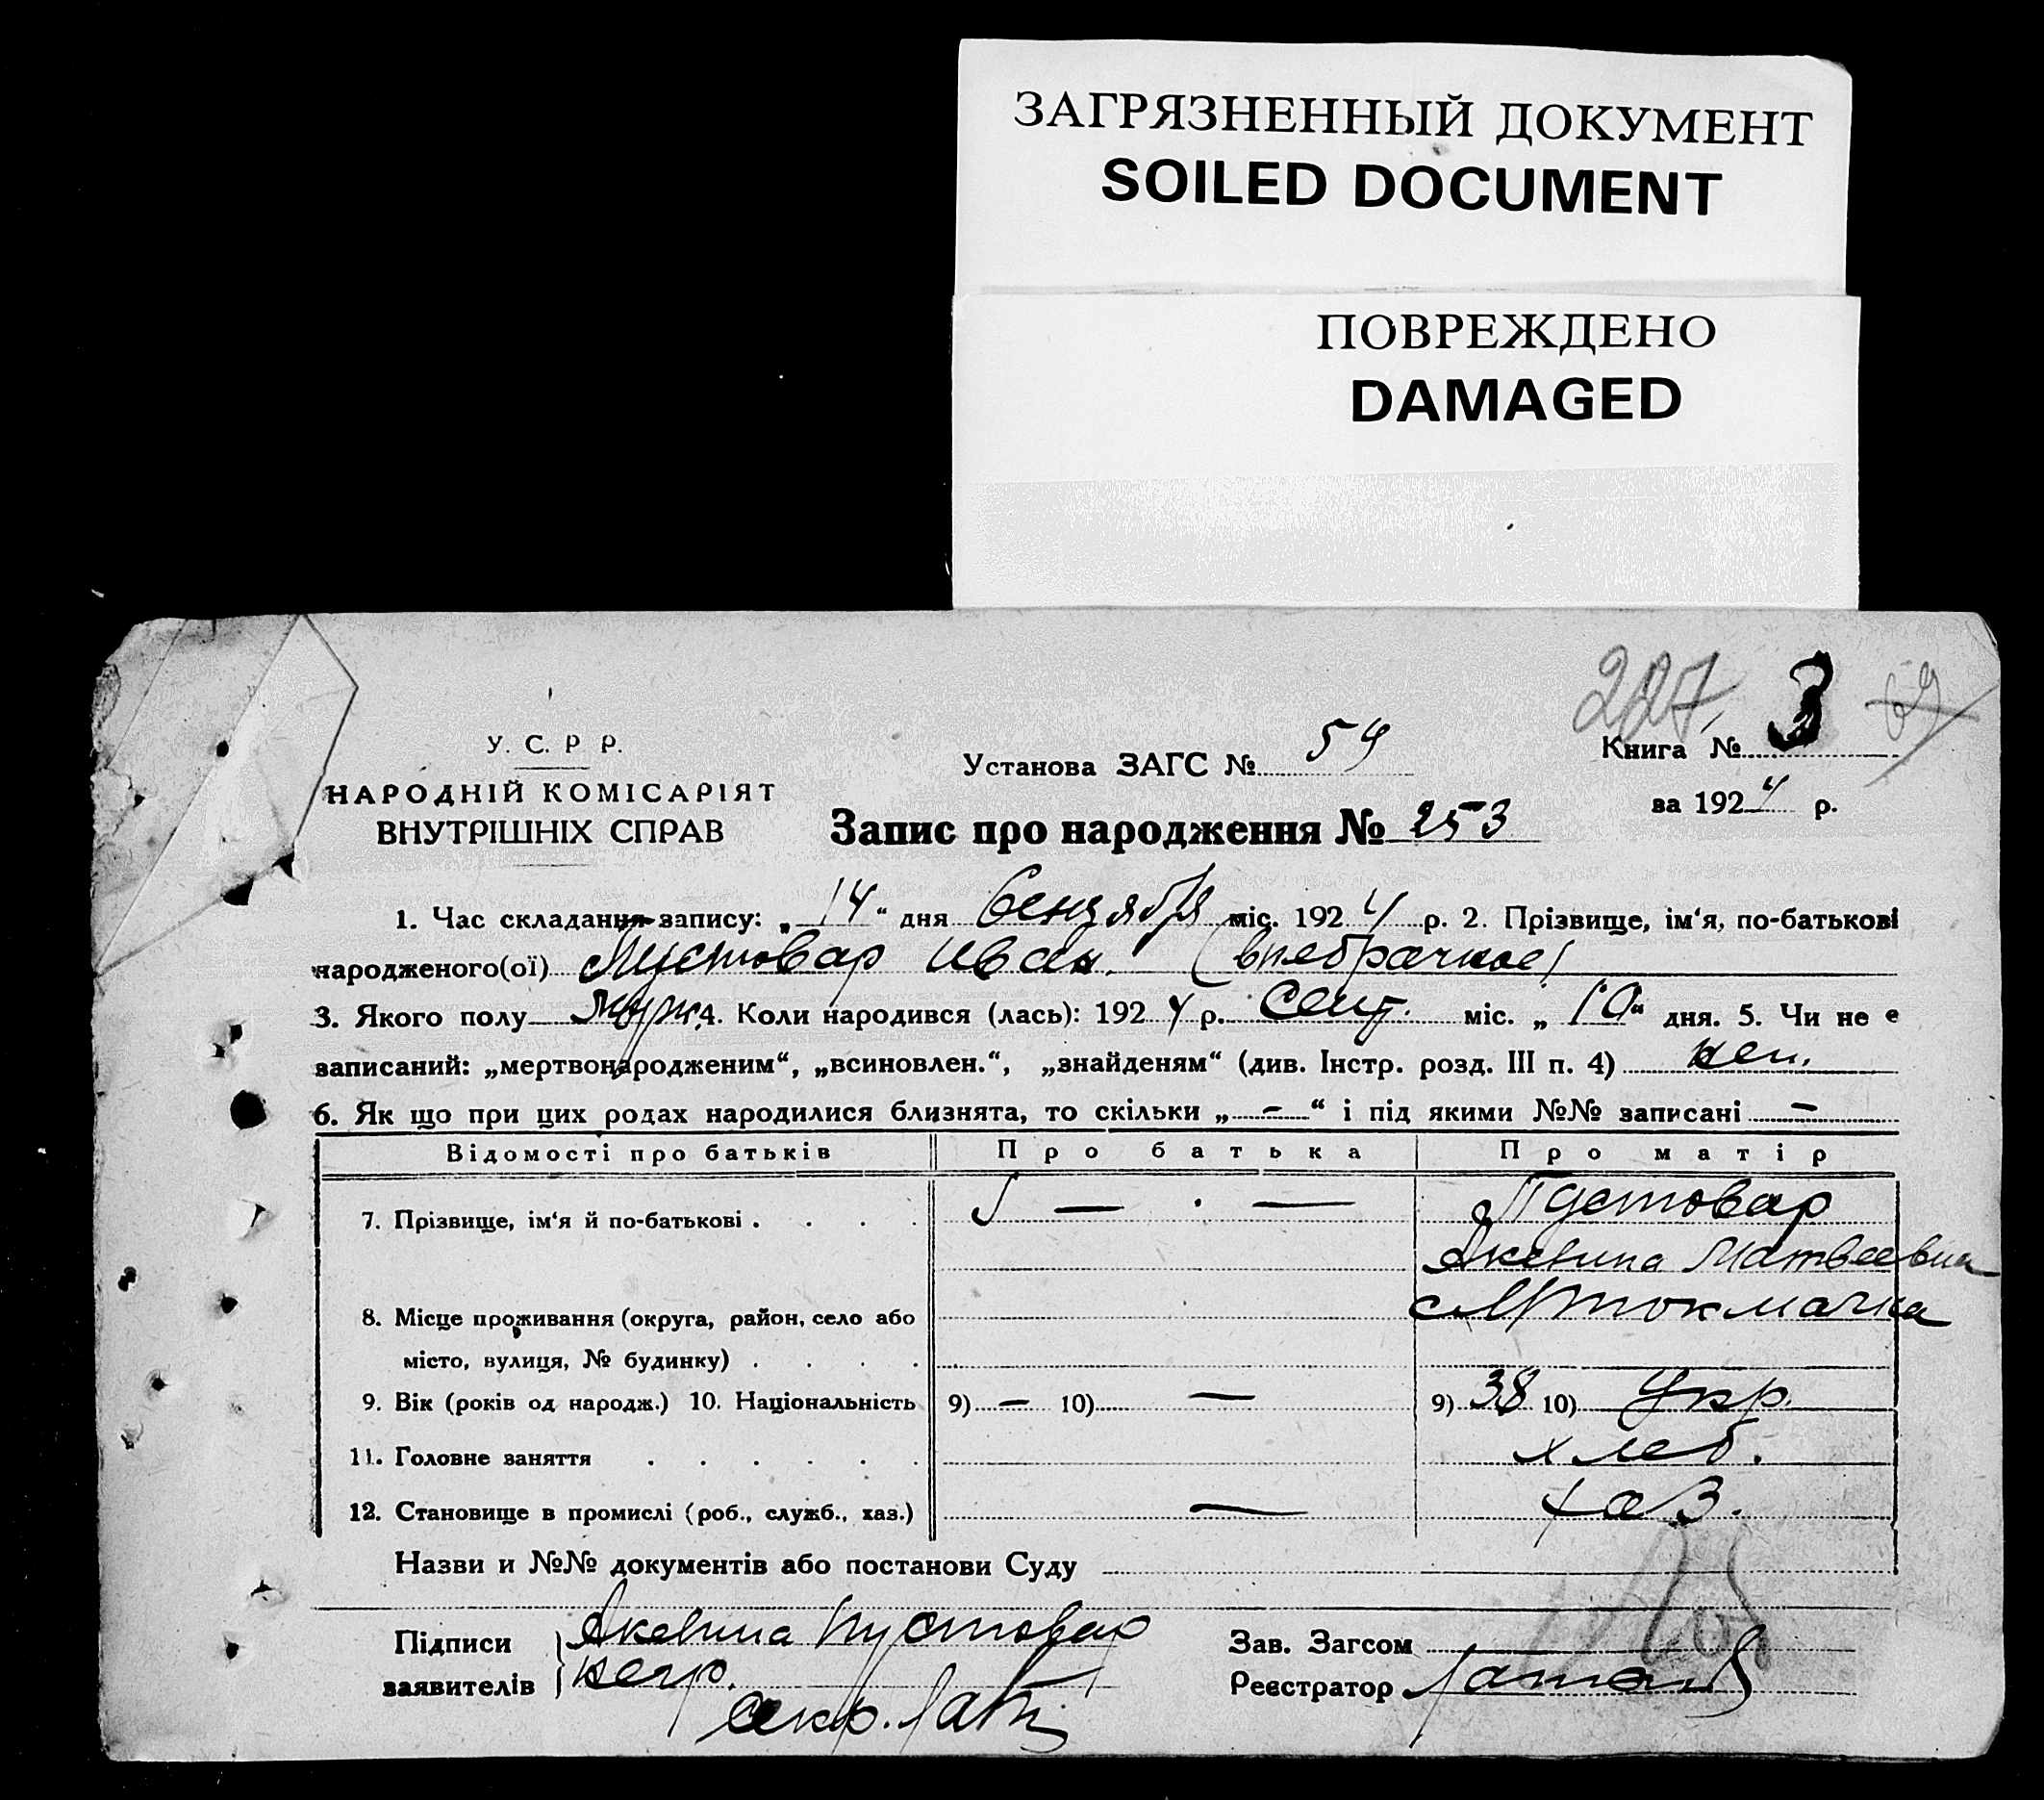 ЗАГРЯЗНЕННЫЙ ДОКУМЕНТ
SOILED DOCUMENT
ПОВРЕЖДЕНО
DAMAGED
227 3 59
У. С. Р Р.
Установа ЗАГС № 54
Книга №
НАРОДНІЙ КОМІСАРІЯТ
ВНУТРІШНІХ СПРАВ
за 1924 р.
Запис про народження № 253
1. Час складання запису: „ 14 “ дня Сентября міс. 1924 р. 2. Прізвище, ім‘я, по-батькові
народженого(ої) Пустовар Иван. (внебрачное)
3. Якого полу муж. 4. Коли народився (лась): 1924 р. Сент. міс. „ 10 “ дня. 5. Чи не є
записаний: „мертвонародженим“, „всиновлен.“, „знайденям“ (див. Інстр. розд. III п. 4) нет.
6. Як що при цих родах народилися близнята, то скільки „ — “ і під якими №№ записані —
Відомості про батьків Про батька Про матір
7. Прізвище, ім‘я й по-батькові . . . . — . — Пустовар
Акевина Матвеевна
8. Місце проживання (округа, район, село або
місто, вулиця, № будинку) . . . . Токмачка
9. Вік (років од народж.) 10. Національність 9) — 10) — 9) 38 10) Укр.
11. Головне заняття . . . . . . хлеб.
12. Становище в промислі (роб., служб., хаз.) — хаз.
Назви и №№ документів або постанови Суду
Підписи
заявителів
Акевина Пустовар
негр.
секр.
Зав. Загсом
Реєстратор